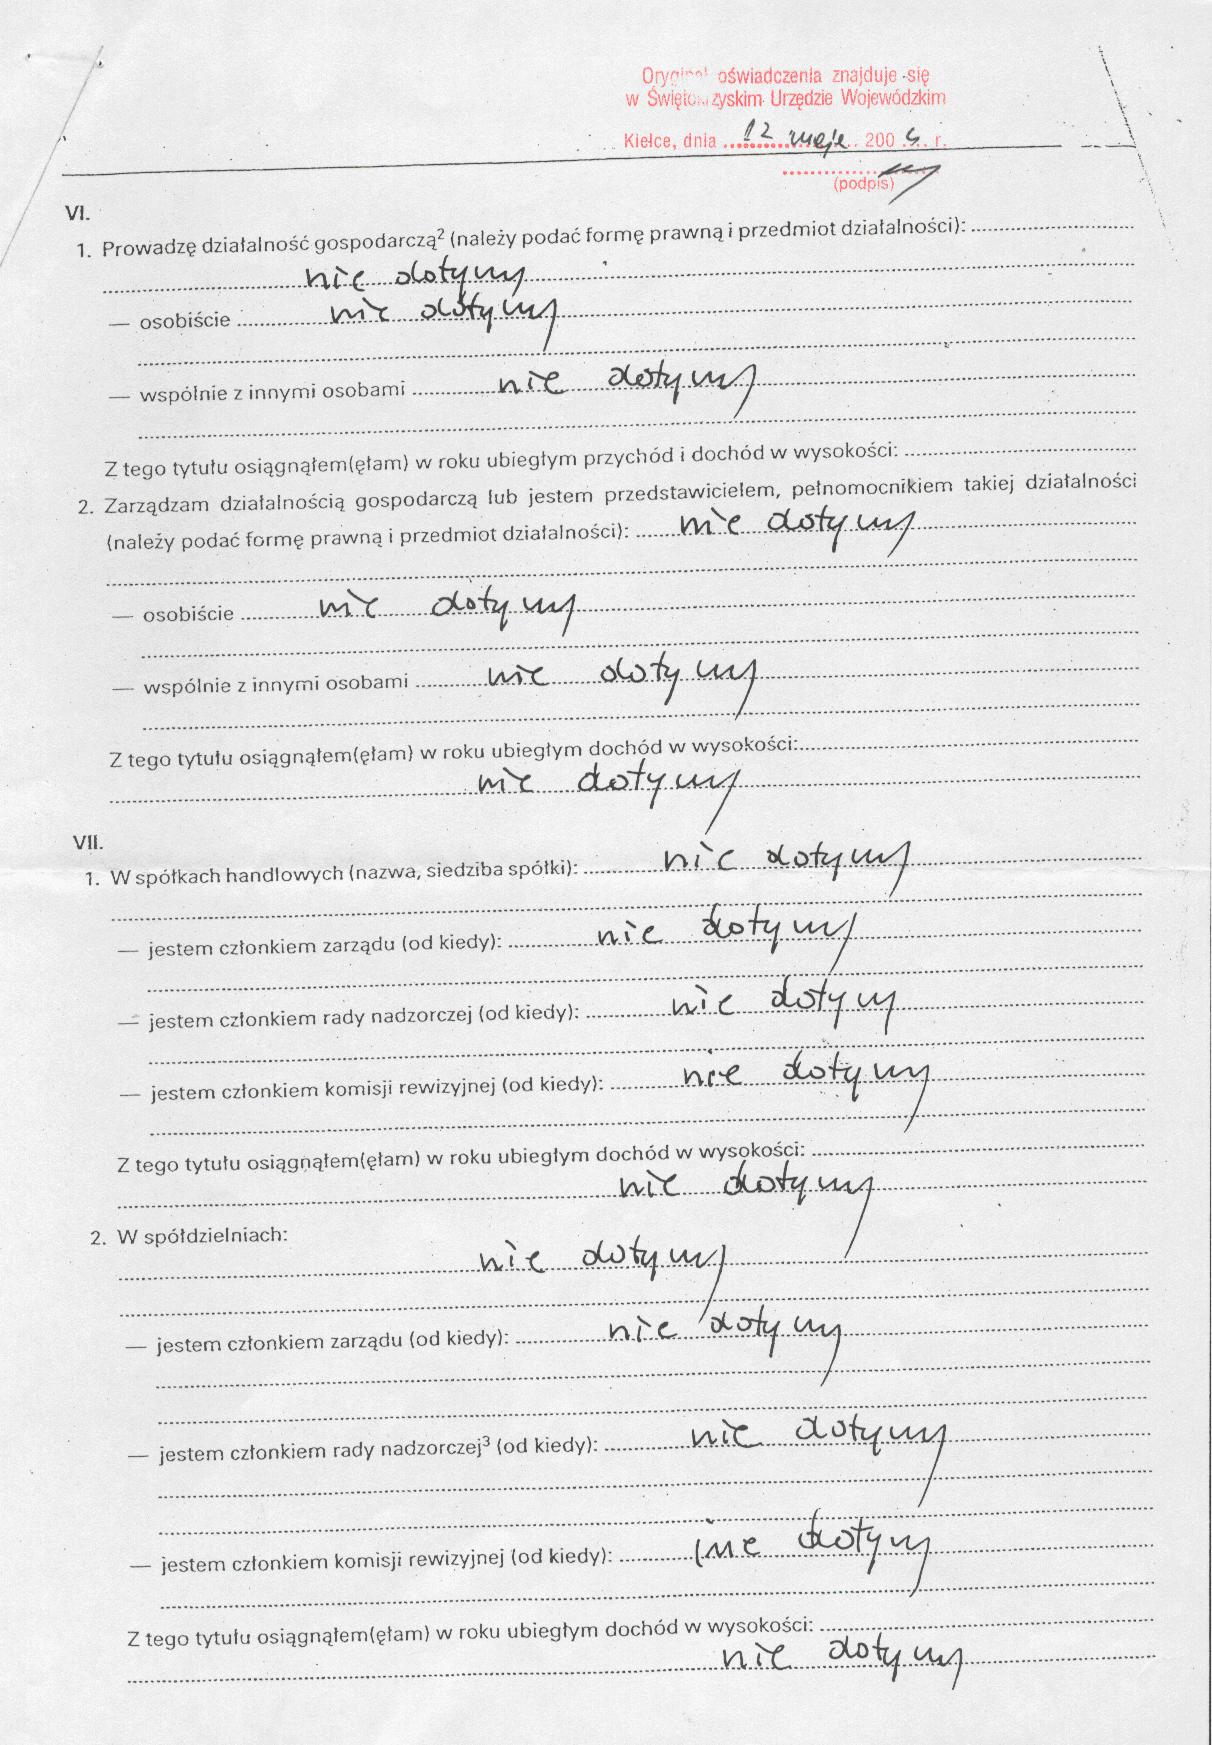 Oryginał oświadczenia znajduje się
w Świętokrzyskim Urzędzie Wojewódzkim
Kielce, dnia 12 maja 200 r.
(podpis)
VI.
1. Prowadzę działalność gospodarczą² (należy podać formę prawną i przedmiot działalności):
nie dotyczy
— osobiście nie dotyczy
— wspólnie z innymi osobami nie dotyczy
Z tego tytułu osiągnąłem(ęłam) w roku ubiegłym przychód i dochód w wysokości:
2. Zarządzam działalnością gospodarczą lub jestem przedstawicielem, pełnomocnikiem takiej działalności
(należy podać formę prawną i przedmiot działalności): nie dotyczy
— osobiście nie dotyczy
— wspólnie z innymi osobami nie dotyczy
Z tego tytułu osiągnąłem(ęłam) w roku ubiegłym dochód w wysokości:
nie dotyczy
VII.
1. W spółkach handlowych (nazwa, siedziba spółki): nie dotyczy
— jestem członkiem zarządu (od kiedy): nie dotyczy
— jestem członkiem rady nadzorczej (od kiedy): nie dotyczy
— jestem członkiem komisji rewizyjnej (od kiedy): nie dotyczy
Z tego tytułu osiągnąłem(ęłam) w roku ubiegłym dochód w wysokości:
nie dotyczy
2. W spółdzielniach:
nie dotyczy
— jestem członkiem zarządu (od kiedy): nie dotyczy
— jestem członkiem rady nadzorczej³ (od kiedy): nie dotyczy
— jestem członkiem komisji rewizyjnej (od kiedy): nie dotyczy
Z tego tytułu osiągnąłem(ęłam) w roku ubiegłym dochód w wysokości:
nie dotyczy